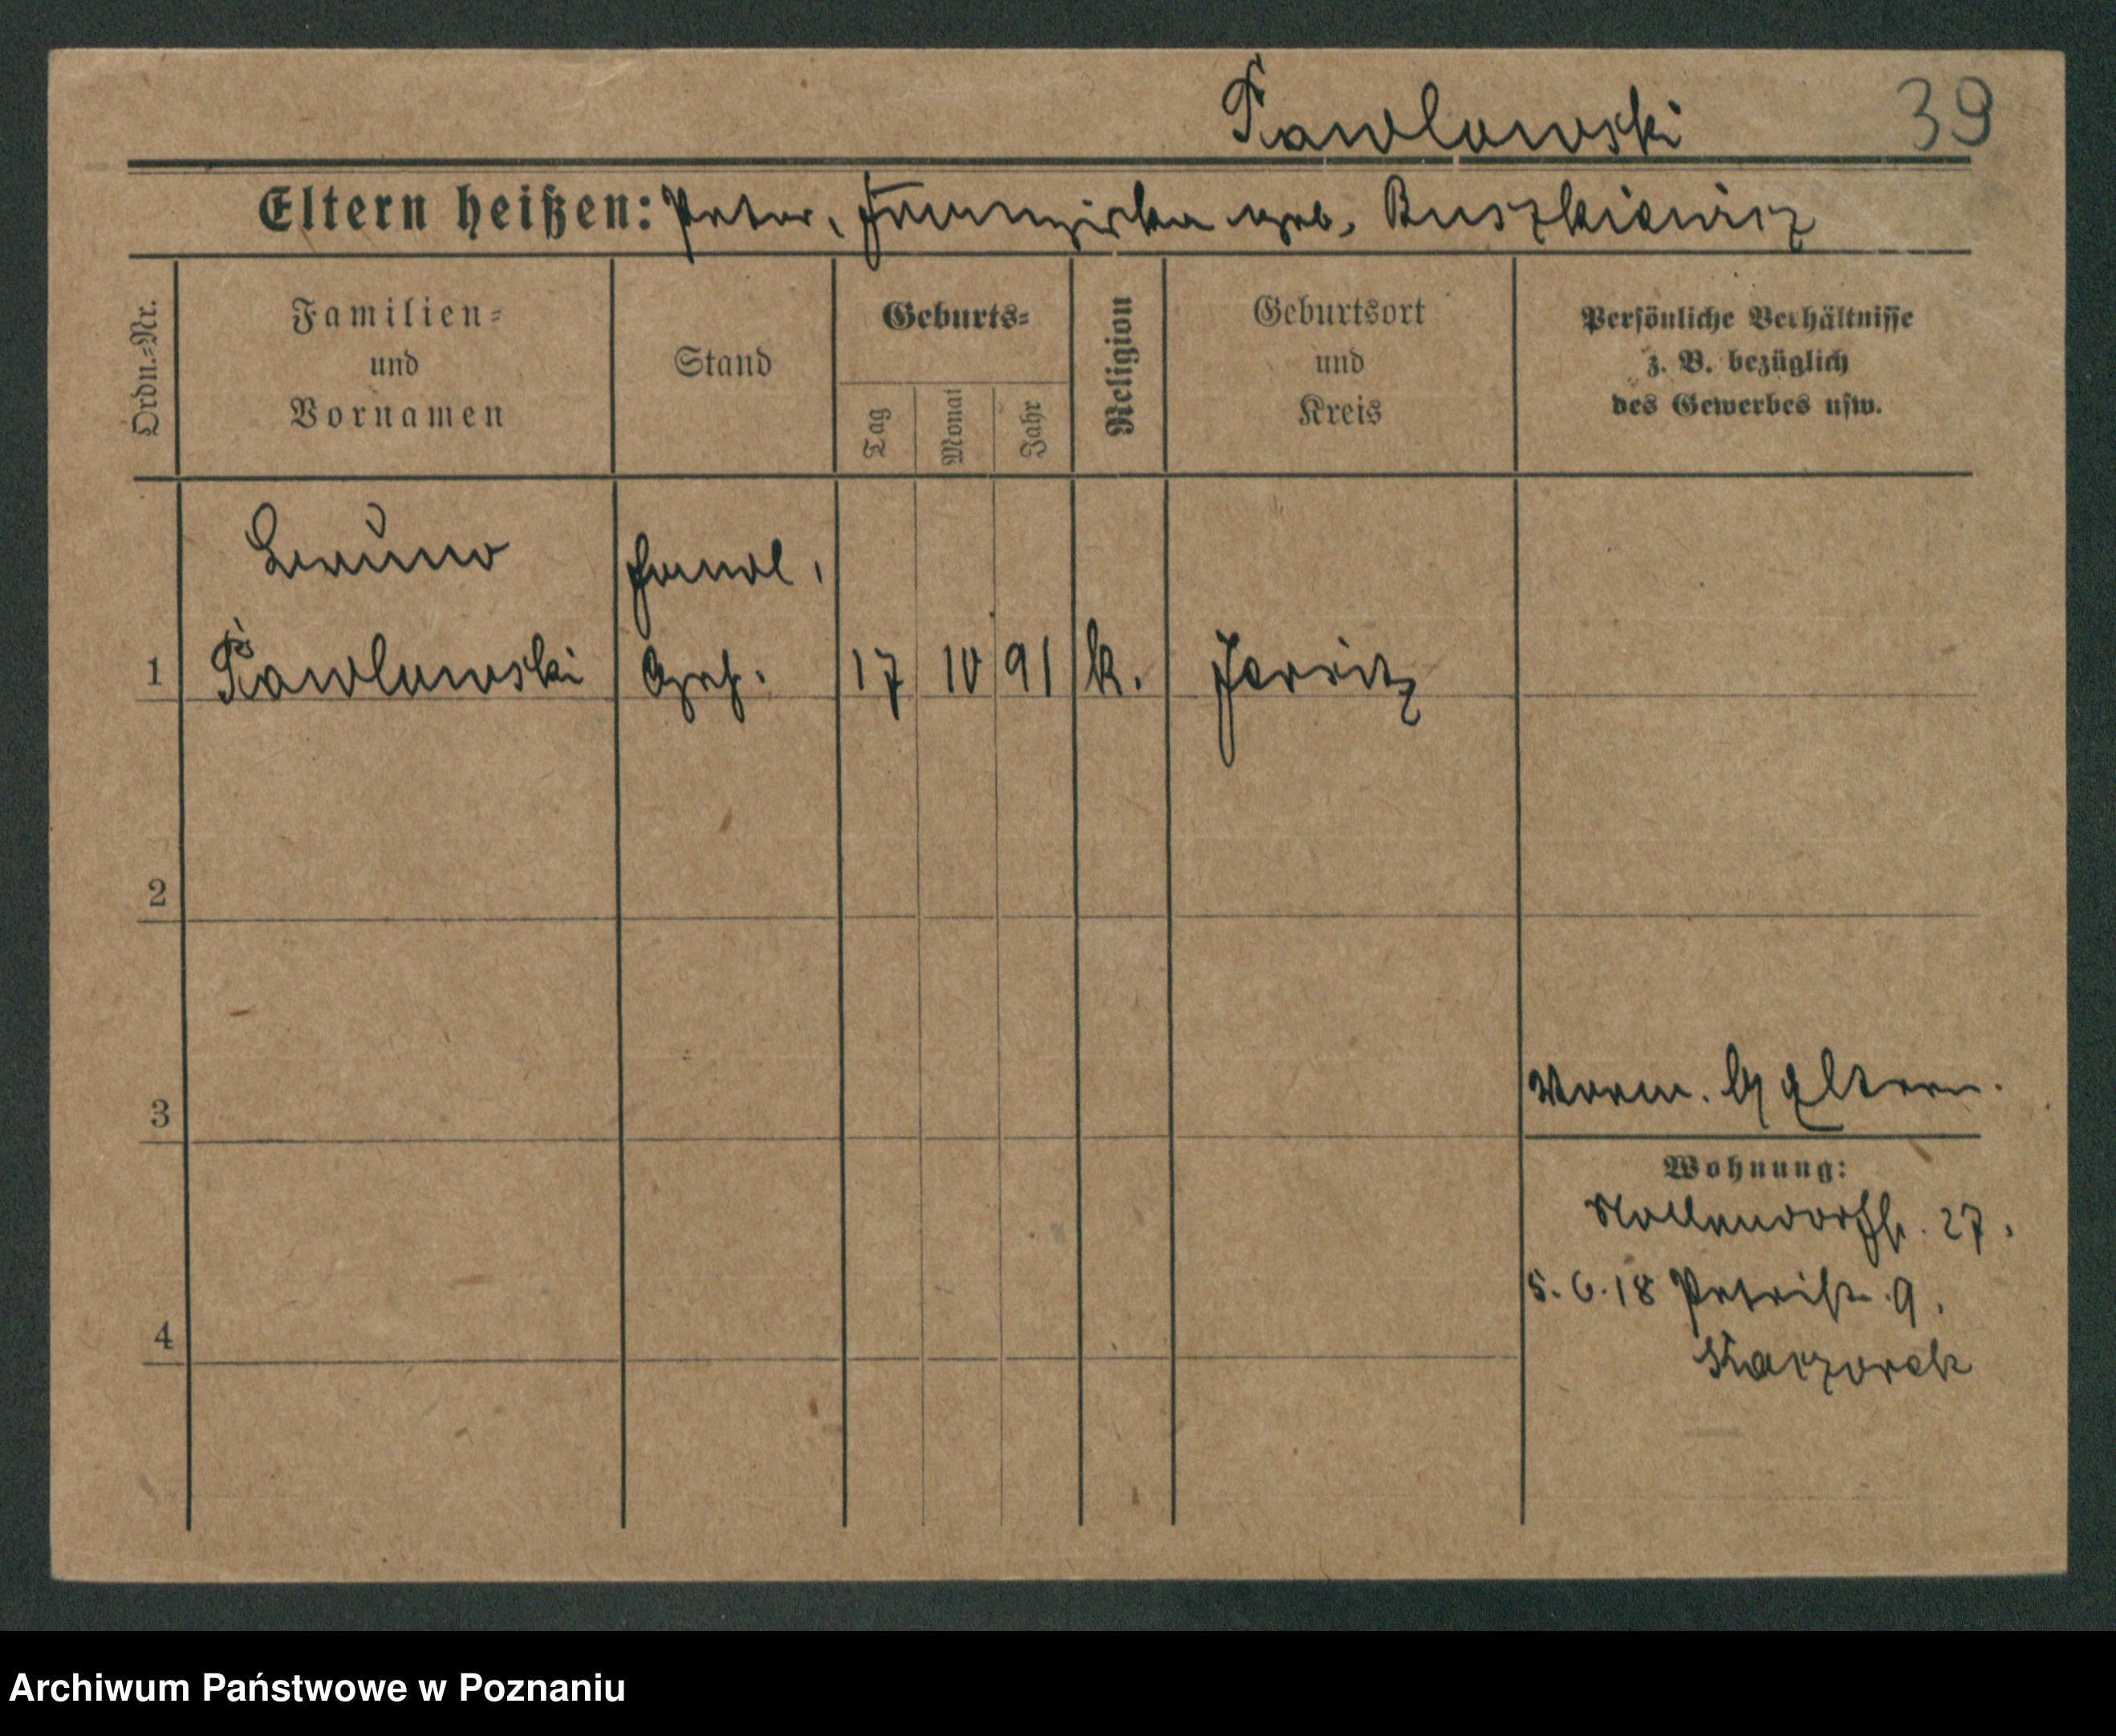 Pawlowski 39
Eltern heißen: Peter, Franziska geb. Buszkiewicz
Ordn.-Nr.
Familien-
und
Vornamen
Stand
Geburts-
Tag
Monat
Jahr
Religion
Geburtsort
und
Kreis
Persönliche Verhältnisse
z. B. bezüglich
des Gewerbes usw.
Bruno Handl.
1 Pawlowski Geh. 17 10 91 k. Jersitz
2
3
b/ Eltern.
Wohnung:
Nollendorfstr. 27.
5.6.18 Petristr. 9.
4
Kaczorek
Archiwum Państwowe w Poznaniu